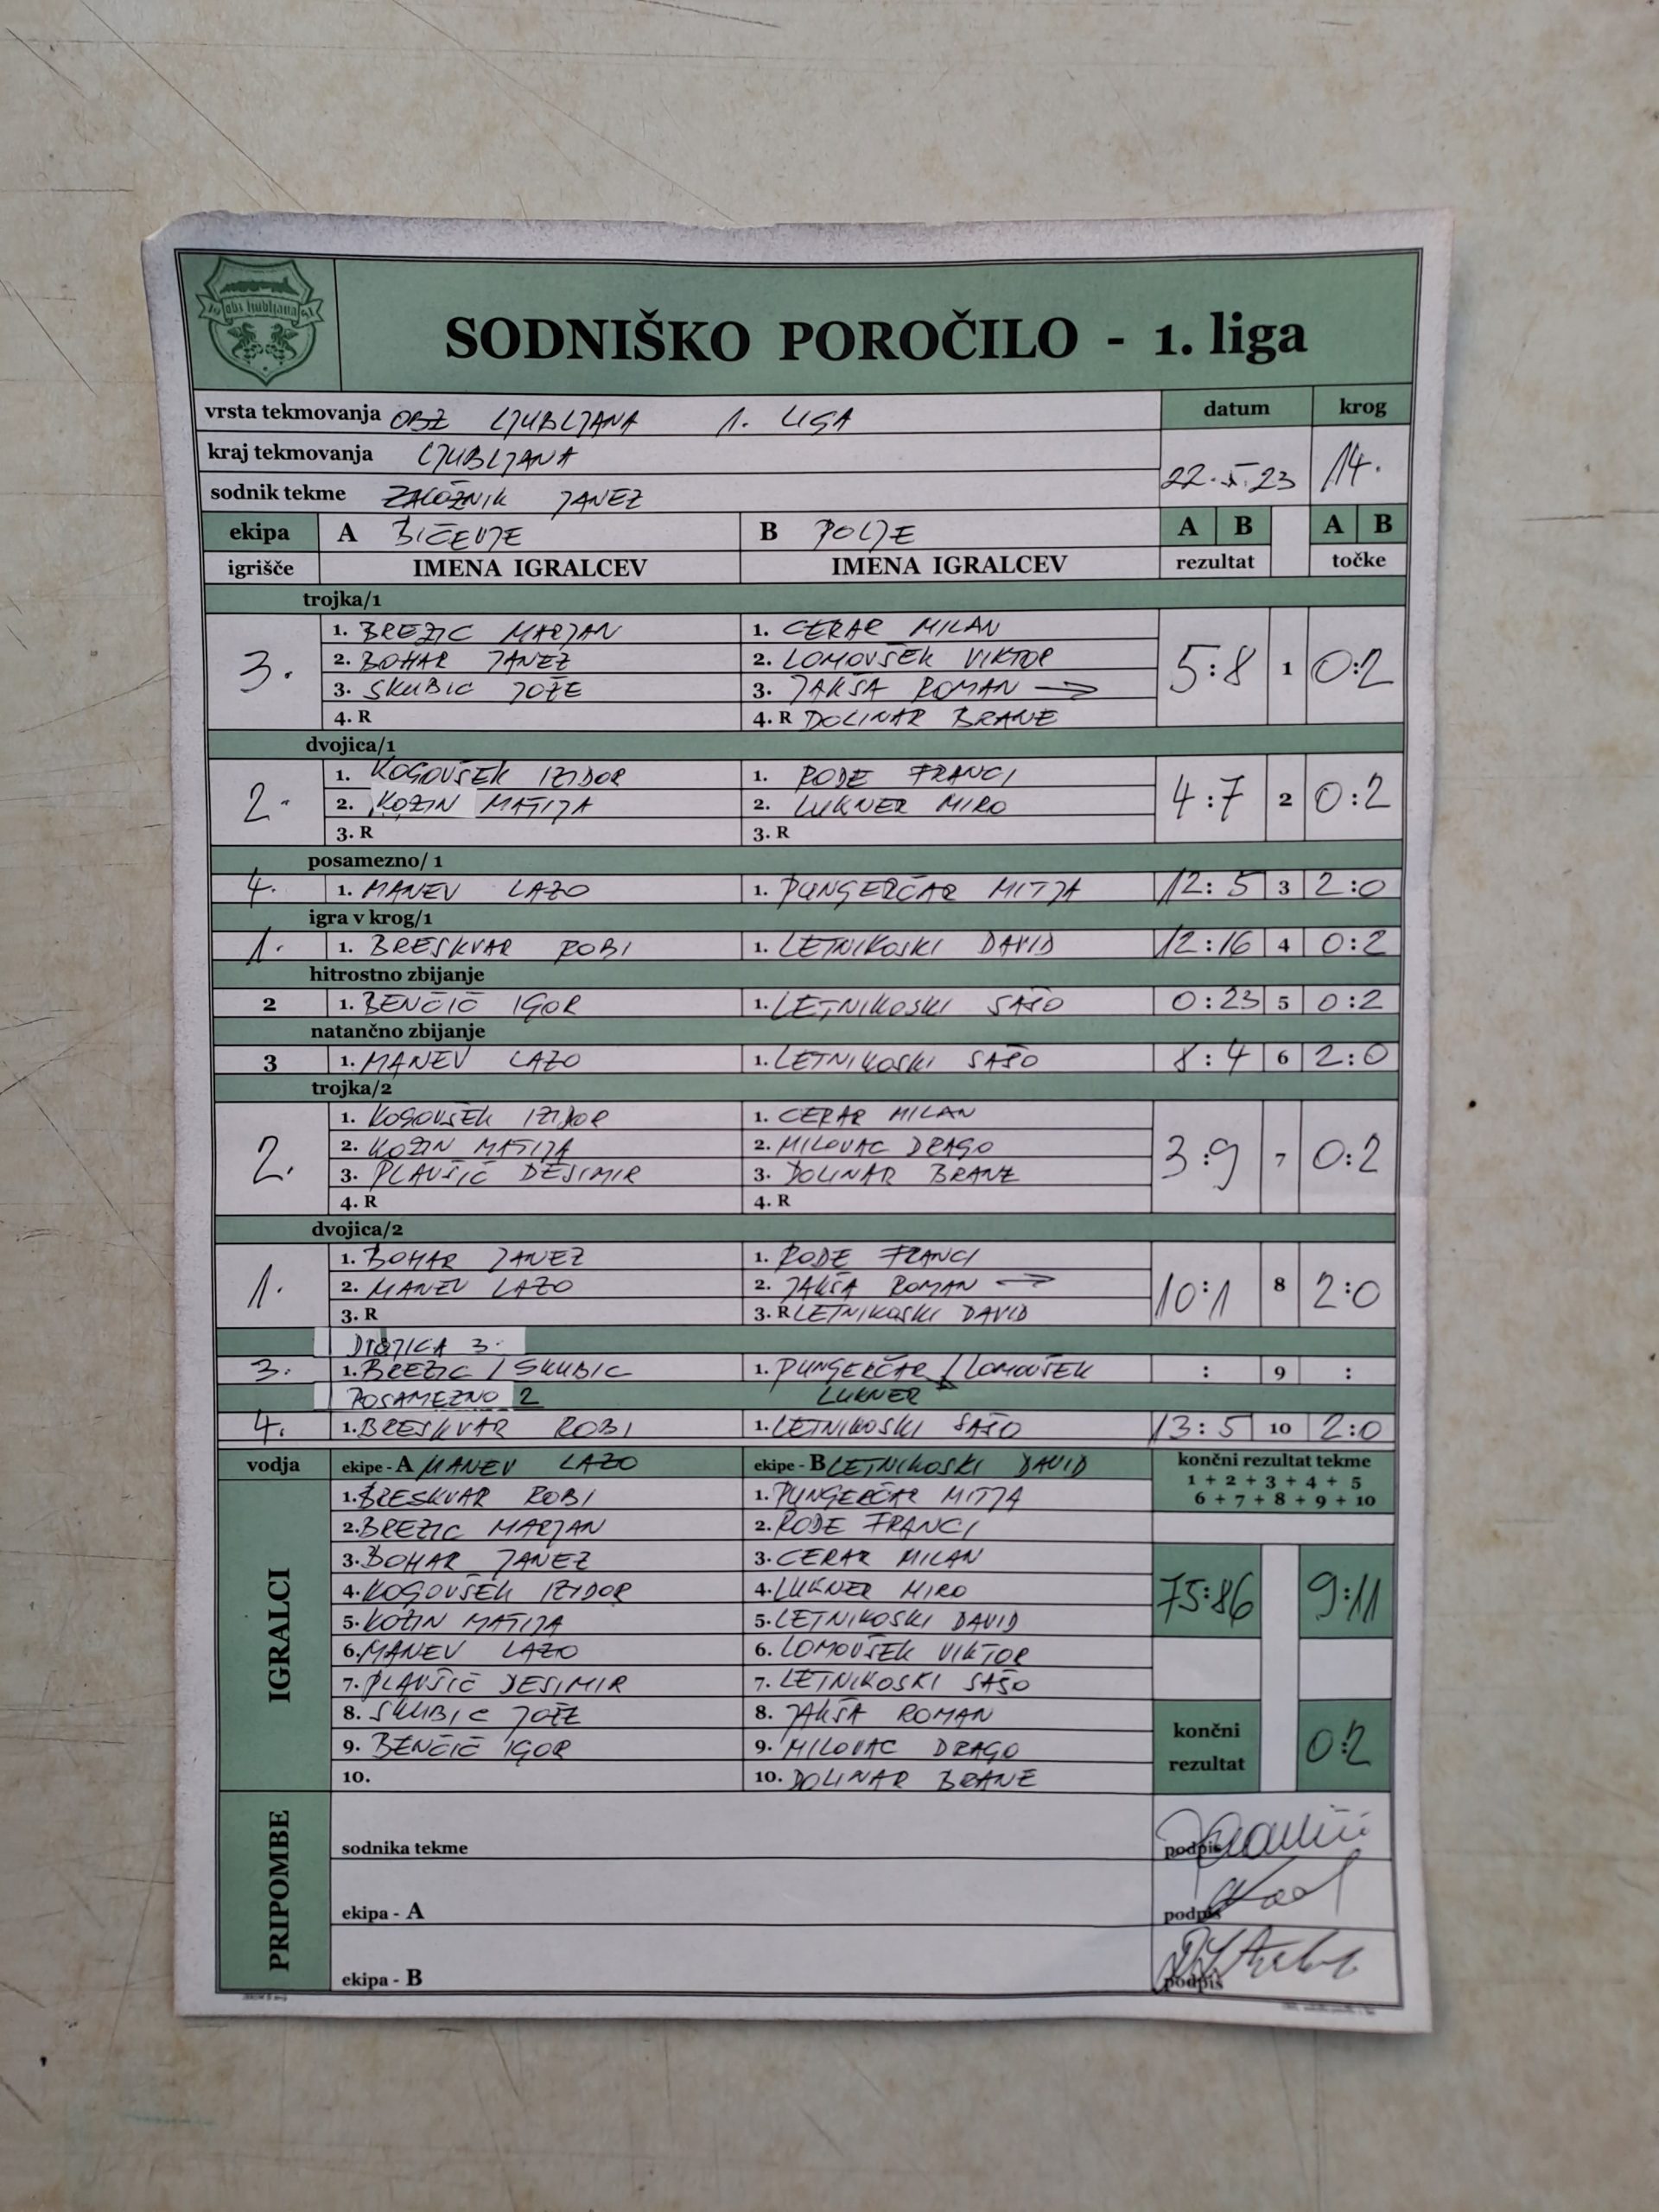 obz ljubljana
SODNIŠKO POROČILO - 1. liga
vrsta tekmovanja OBZ LJUBLJANA 1. LIGA datum krog
kraj tekmovanja LJUBLJANA
sodnik tekme ZALOŽNIK JANEZ 22.5.23 14.
ekipa A BIČEVJE B POLJE A B A B
igrišče IMENA IGRALCEV IMENA IGRALCEV rezultat točke
trojka/1
1. BREZIC MARJAN 1. CERAR MILAN
2. BOHAR JANEZ 2. LOMOVŠEK VIKTOR
3. 3. SKUBIC JOŽE 3. JAKŠA ROMAN → 5:8 1 0:2
4. R 4. R DOLINAR BRANE
dvojica/1
1. KOGOVŠEK IZIDOR 1. RODE FRANCI
2. 2. KOZIN MATIJA 2. LUKNER MIRO 4:7 2 0:2
3. R 3. R
posamezno/ 1
4. 1. MANEV LAZO 1. PUNGERČAR MITJA 12:5 3 2:0
igra v krog/1
1. 1. BRESKVAR ROBI 1. LETNIKOSKI DAVID 12:16 4 0:2
hitrostno zbijanje
2 1. BENČIČ IGOR 1. LETNIKOSKI SAŠO 0:23 5 0:2
natančno zbijanje
3 1. MANEV LAZO 1. LETNIKOSKI SAŠO 8:4 6 2:0
trojka/2
1. KOGOVŠEK IZIDOR 1. CERAR MILAN
2. 2. KOZIN MATIJA 2. MILOVAC DRAGO 3:9 7 0:2
3. PLAVŠIČ DESIMIR 3. DOLINAR BRANE
4. R 4. R
dvojica/2
1. BOHAR JANEZ 1. RODE FRANCI
1. 2. MANEV LAZO 2. JAKŠA ROMAN → 10:1 8 2:0
3. R 3. R LETNIKOSKI DAVID
DVOJICA 3.
3. 1. BREZIC / SKUBIC 1. PUNGERČAR / LOMOVŠEK : 9 :
POSAMEZNO 2 LUKNER
4. 1. BRESKVAR ROBI 1. LETNIKOSKI SAŠO 13:5 10 2:0
vodja ekipe - A MANEV LAZO ekipe - B LETNIKOSKI DAVID končni rezultat tekme
1 + 2 + 3 + 4 + 5
6 + 7 + 8 + 9 + 10
IGRALCI
1. BRESKVAR ROBI 1. PUNGERČAR MITJA
2. BREZIC MARJAN 2. RODE FRANCI
3. BOHAR JANEZ 3. CERAR MILAN
4. KOGOVŠEK IZIDOR 4. LUKNER MIRO 75:86 9:11
5. KOZIN MATIJA 5. LETNIKOSKI DAVID
6. MANEV LAZO 6. LOMOVŠEK VIKTOR
7. PLAVŠIČ DESIMIR 7. LETNIKOSKI SAŠO
8. SKUBIC JOŽE 8. JAKŠA ROMAN
9. BENČIČ IGOR 9. MILOVAC DRAGO
10. 10. DOLINAR BRANE
končni rezultat 0:2
PRIPOMBE
sodnika tekme podpis
ekipa - A podpis
ekipa - B podpis